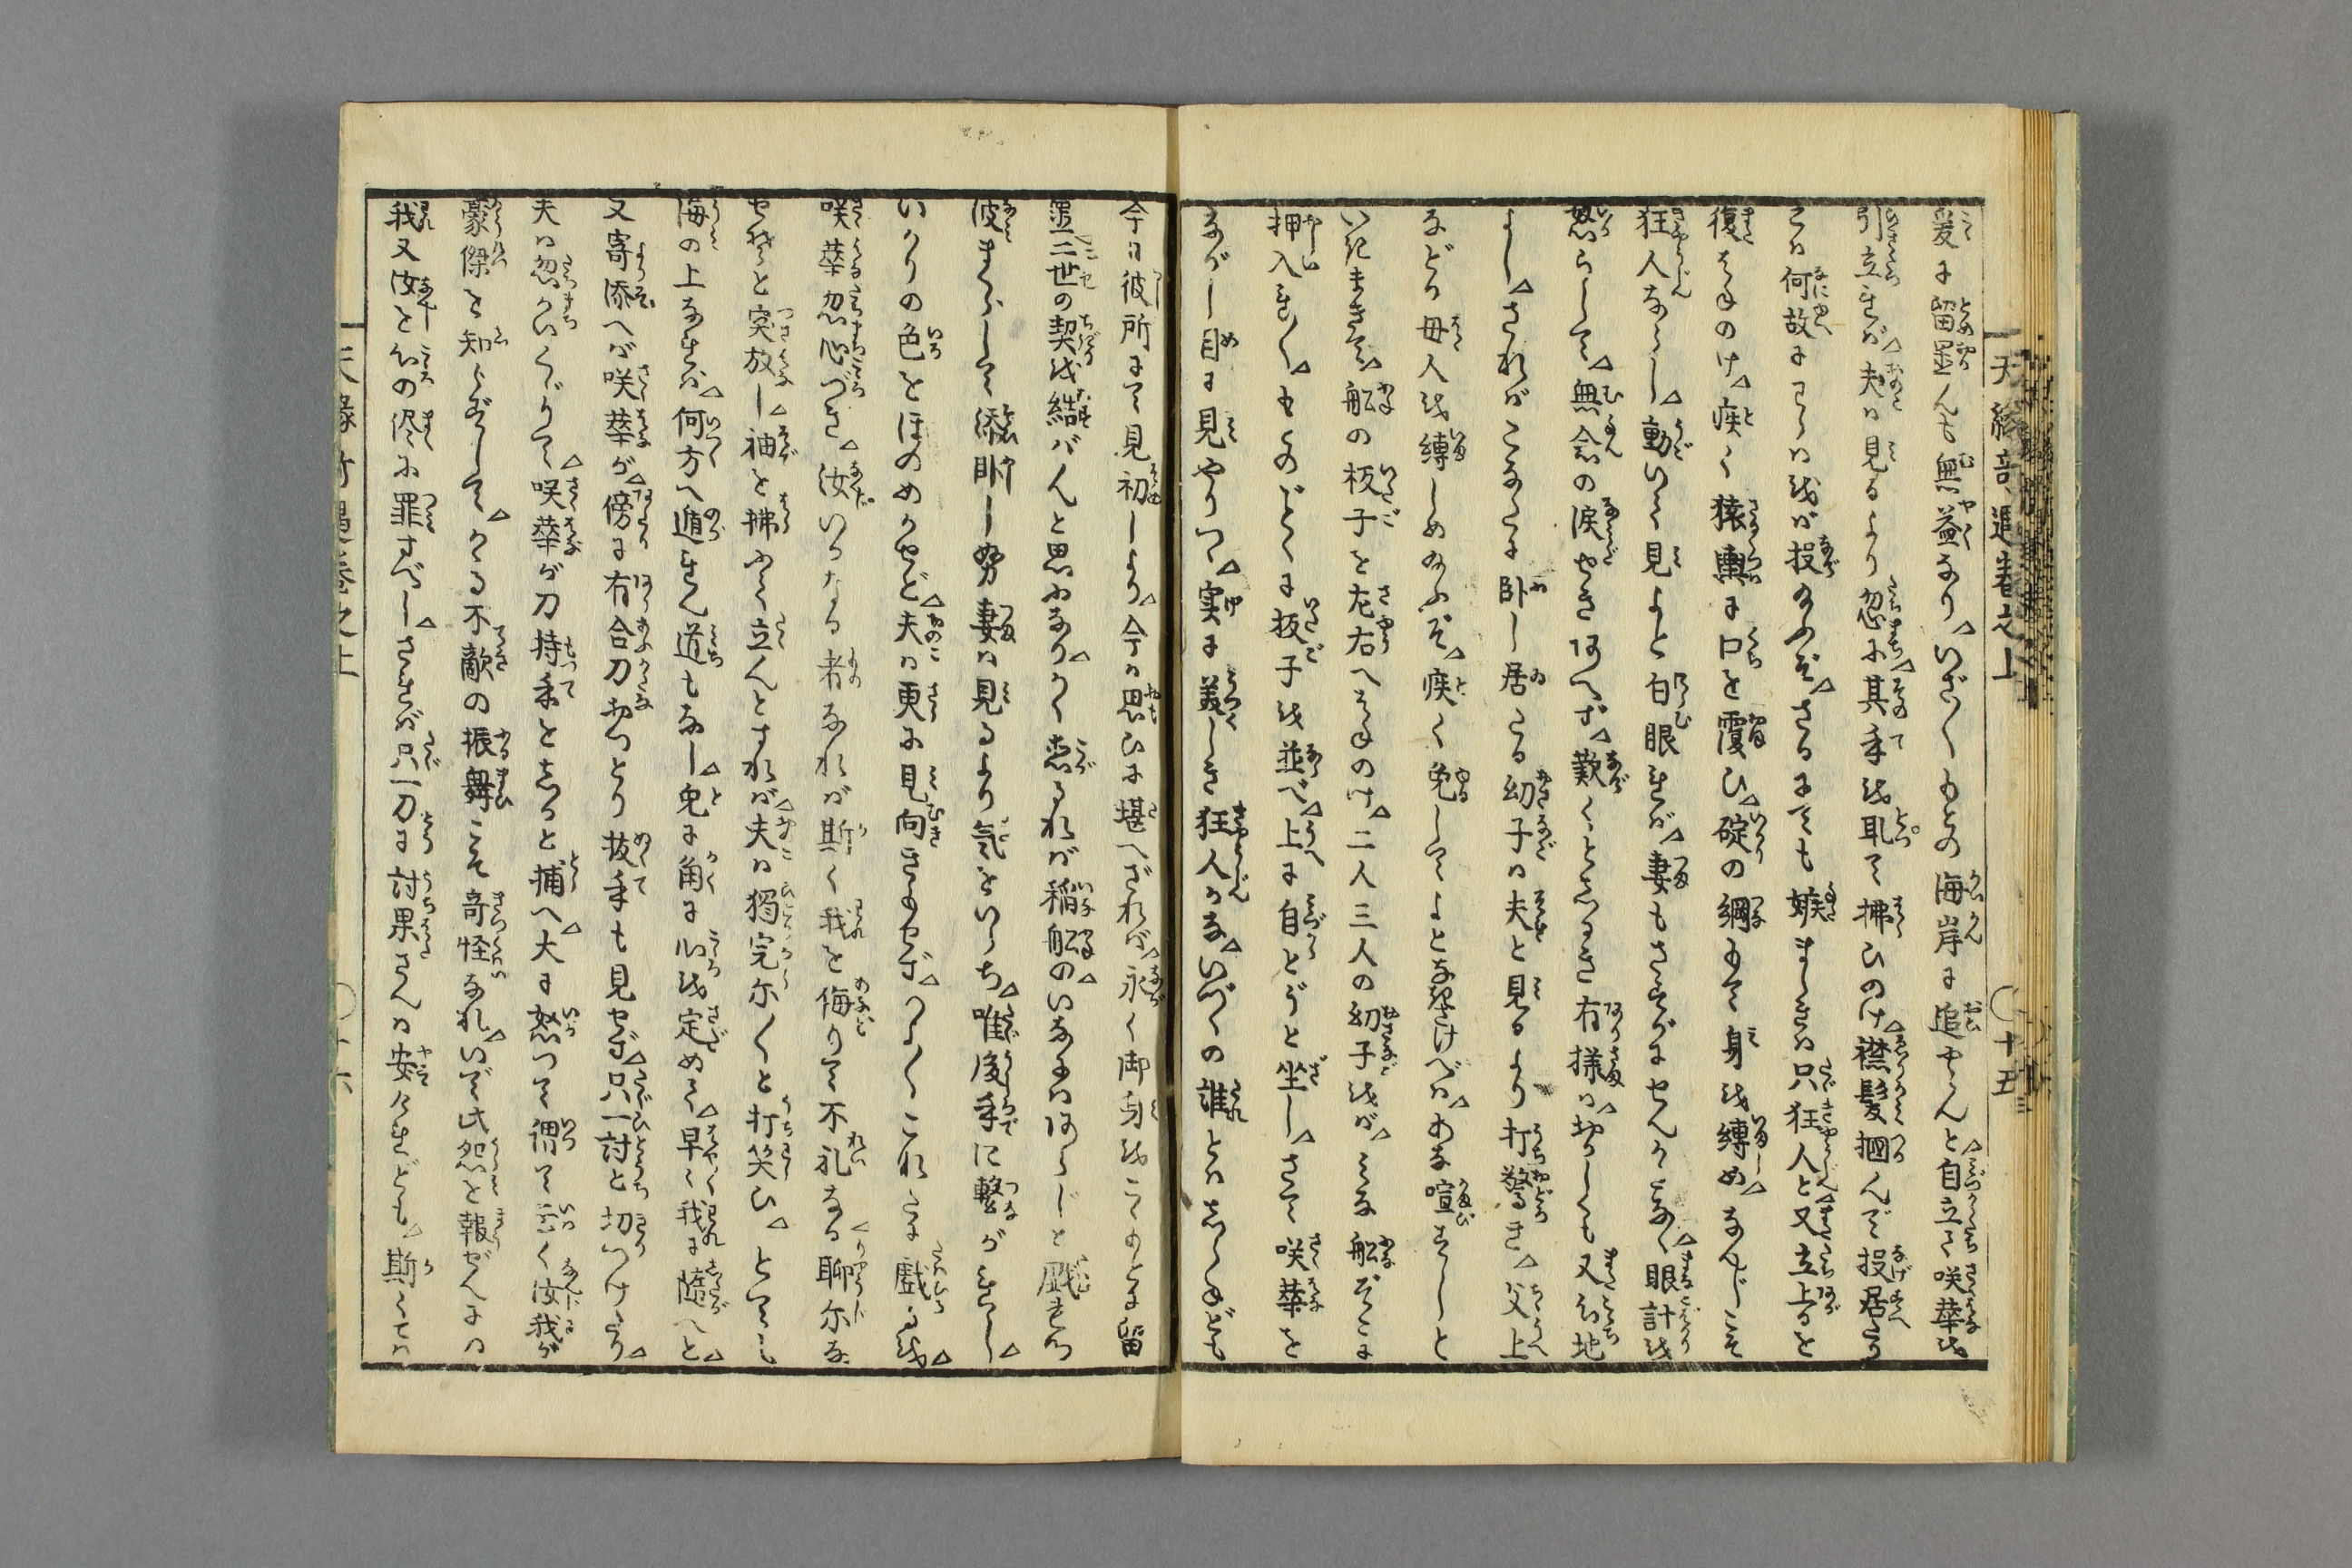 爰に留置んも無益なり△いざ〳〵もとの海岸に追やらんと△自立て咲華を
引立れば△夫は見るより忽に△其手を取て拂ひのけ△襟髪掴んで投居たり
こは何故にわらはをば投給ふぞ△さるにても嫉ましきは只狂人と△又立上るを
復はねのけ△疾く猿轡に口を覆ひ△碇の綱もて身を縛め△なんじこそ
狂人ならし△動いて見よと白眼れば△妻もさすがにせんかたなく△眼計を
怒らして△無念の涙せきあへず△歎くとしるき有様は△おかしくも又心地
よし△さればこなたに臥し居たる幼子は夫と見るより打驚き△父上
などか母人を縛しめ給ふぞ△疾く免してよとなきさけべば△あな喧ましと
いだきまきて△船の板子を左右へはねのけ△二人三人の幼子をば△みな船ぞこに
押入れ〳〵△もとのごとくに板子を並べ△上に自らどうと坐し△さて咲華を
ながし目に見やりつゝ△実に美しき狂人かな△いづくの誰とはしらねども
今日彼所にて見初しより△今は思ひに堪へざれば△永く御身をこのもとに留
置二世の契を結ばんと思ふなり△かく恋るれば稲船のいなにはあらじと戯れつ
彼まくらして添臥し㔟妻は見るより気をいらち△唯後手に繋がれし△
いかりの色をほのめかせど△夫は更に見向きもせず△つら〳〵これに戯るを△
咲華忽心づき△汝いかなる者なれば斯く我を侮りて不礼なる△聊尓な
せそと突放し△袖を拂ふて立んとすれば△夫は獨完尓〳〵と打笑ひ△とても
海の上なれば△何方へ遁れん道もなし△兎に角に心を定めて△早く我に随へと△
又寄添へば咲華が△傍に有合刀おつとり抜手も見せず△只一討と切つけたり△
夫は忽かいくゞりて△咲華が刀持手をしかと捕へ△大に怒つて謂て云く汝我が
豪傑を知らずして△かゝる不敵の振舞こそ奇怪なれ△いで此怨を報ぜんには
我又汝を心の侭に罪すべし△さすれば只一刀に討果さんは安けれども△斯くては
天縁奇遇巻之上 〇十五
天縁奇遇巻之上 〇十六